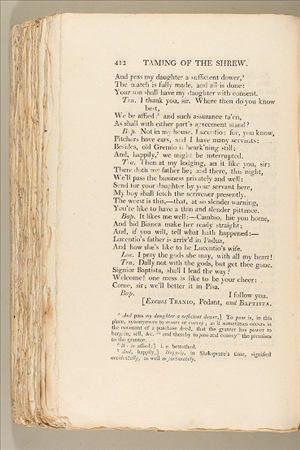 412 TAMING OF THE SHREW.
And pass my daughter a sufficient dower,
The match is fully made, and all is done:
Your son shall have my daughter with consent.
Tra. I thank you, sir. Where then do you know
best,
We be affied; and such assurance ta'en,
As shall with either part's agreement stand?
Bap. Not in my house, Lucentio; for, you know,
Pitchers have ears, and I have many servants:
Besides, old Gremio is heark'ning still;
And, happily, we might be interrupted.
Tra. Then at my lodging, an it like you, sir:
There doth my father lie; and there, this night,
We'll pass the business privately and well:
Send for your daughter by your servant here,
My boy shall fetch the scrivener presently.
The worst is this,—that, at so slender warning,
You're like to have a thin and slender pittance.
Bap. It likes me well:—Cambio, hie you home,
And bid Bianca make her ready straight;
And, if you will, tell what hath happened:—
Lucentio's father is arriv'd in Padua,
And how she's like to be Lucentio's wife.
Luc. I pray the gods she may, with all my heart!
Tra. Dally not with the gods, but get thee gone.
Signior Baptista, shall I lead the way?
Welcome! one mess is like to be your cheer:
Come, sir; we'll better it in Pisa.
Bap. I follow you.
[Exeunt TRANIO, Pedant, and BAPTISTA.
And pass my daughter a sufficient dower,] To pass is, in this
place, synonymous to assure or convey; as it sometimes occurs in
the covenant of a purchase deed, that the granter has power to
bargain, sell, &c. "and thereby to pass and convey" the premises
to the grantee.
We be affied;] i. e. betrothed.
And, happily,] Happily, in Shakspeare's time, signified
accidentally, as well as fortunately.